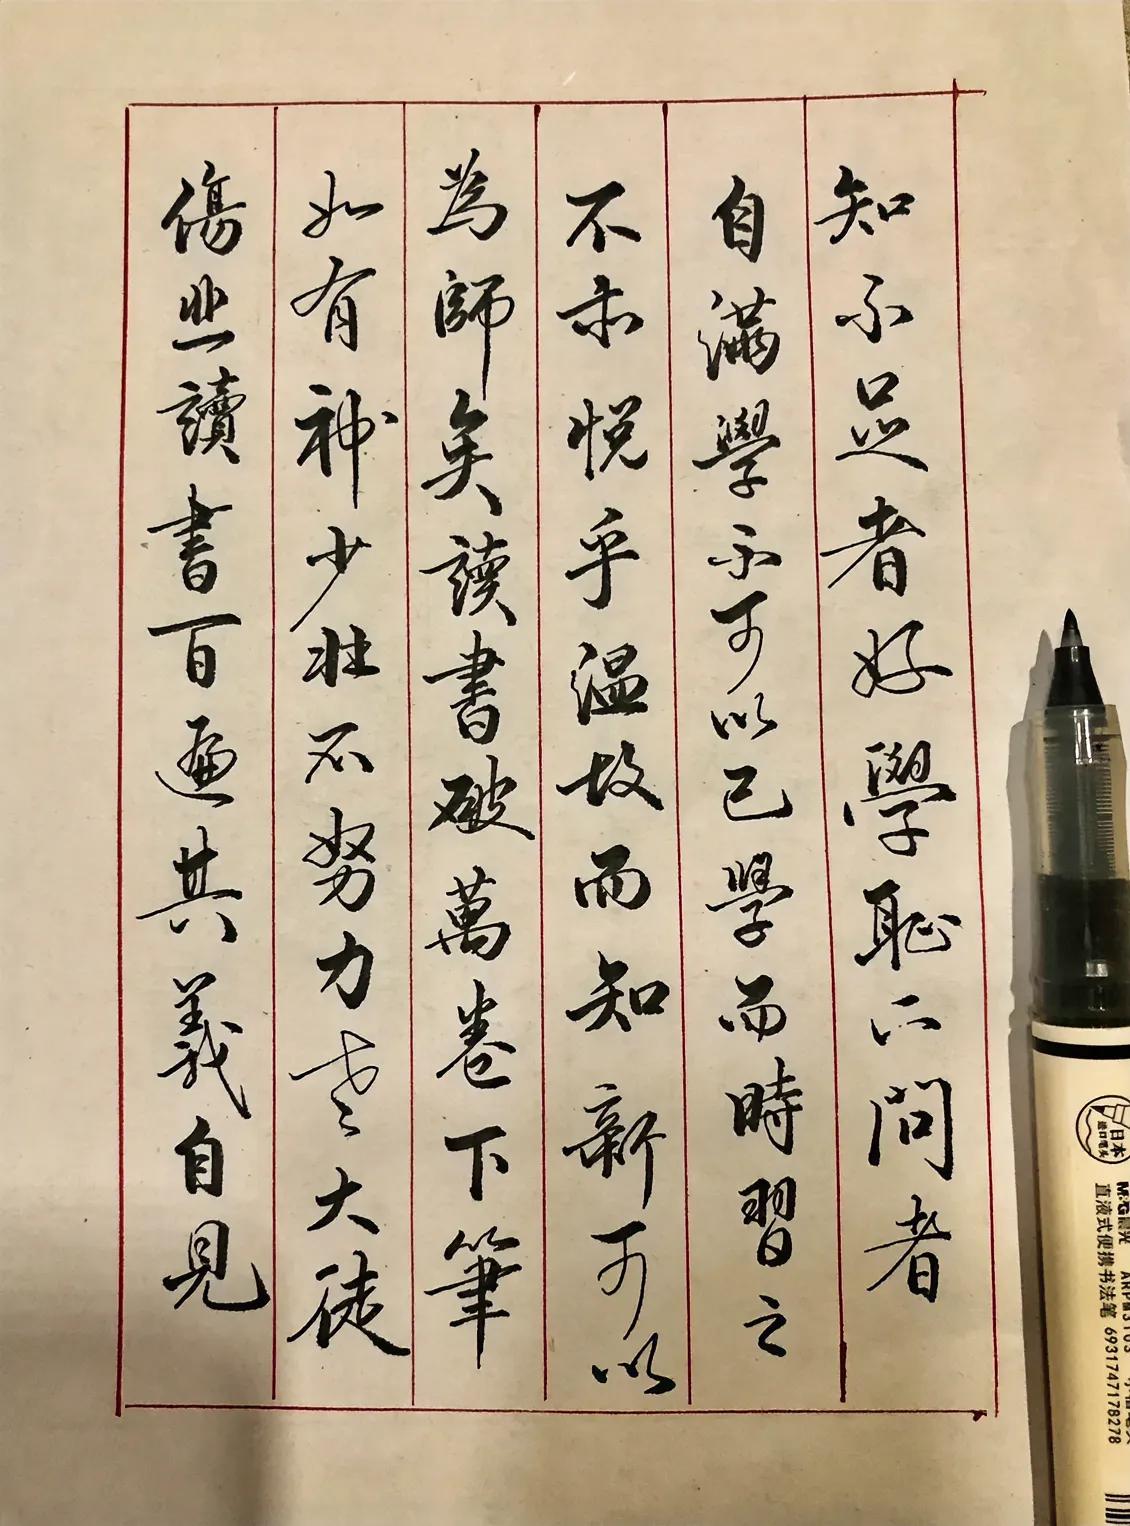 知不足者好學恥不問者
自滿學不可以已學而時習之
不亦悅乎溫故而知新可以
為師矣讀書破萬卷下筆
如有神少壯不努力老大徒
傷悲讀書百遍其義自見
日本
进口笔头
M&G晨光 ARPM3103
直液式便携书法笔 6931747178278